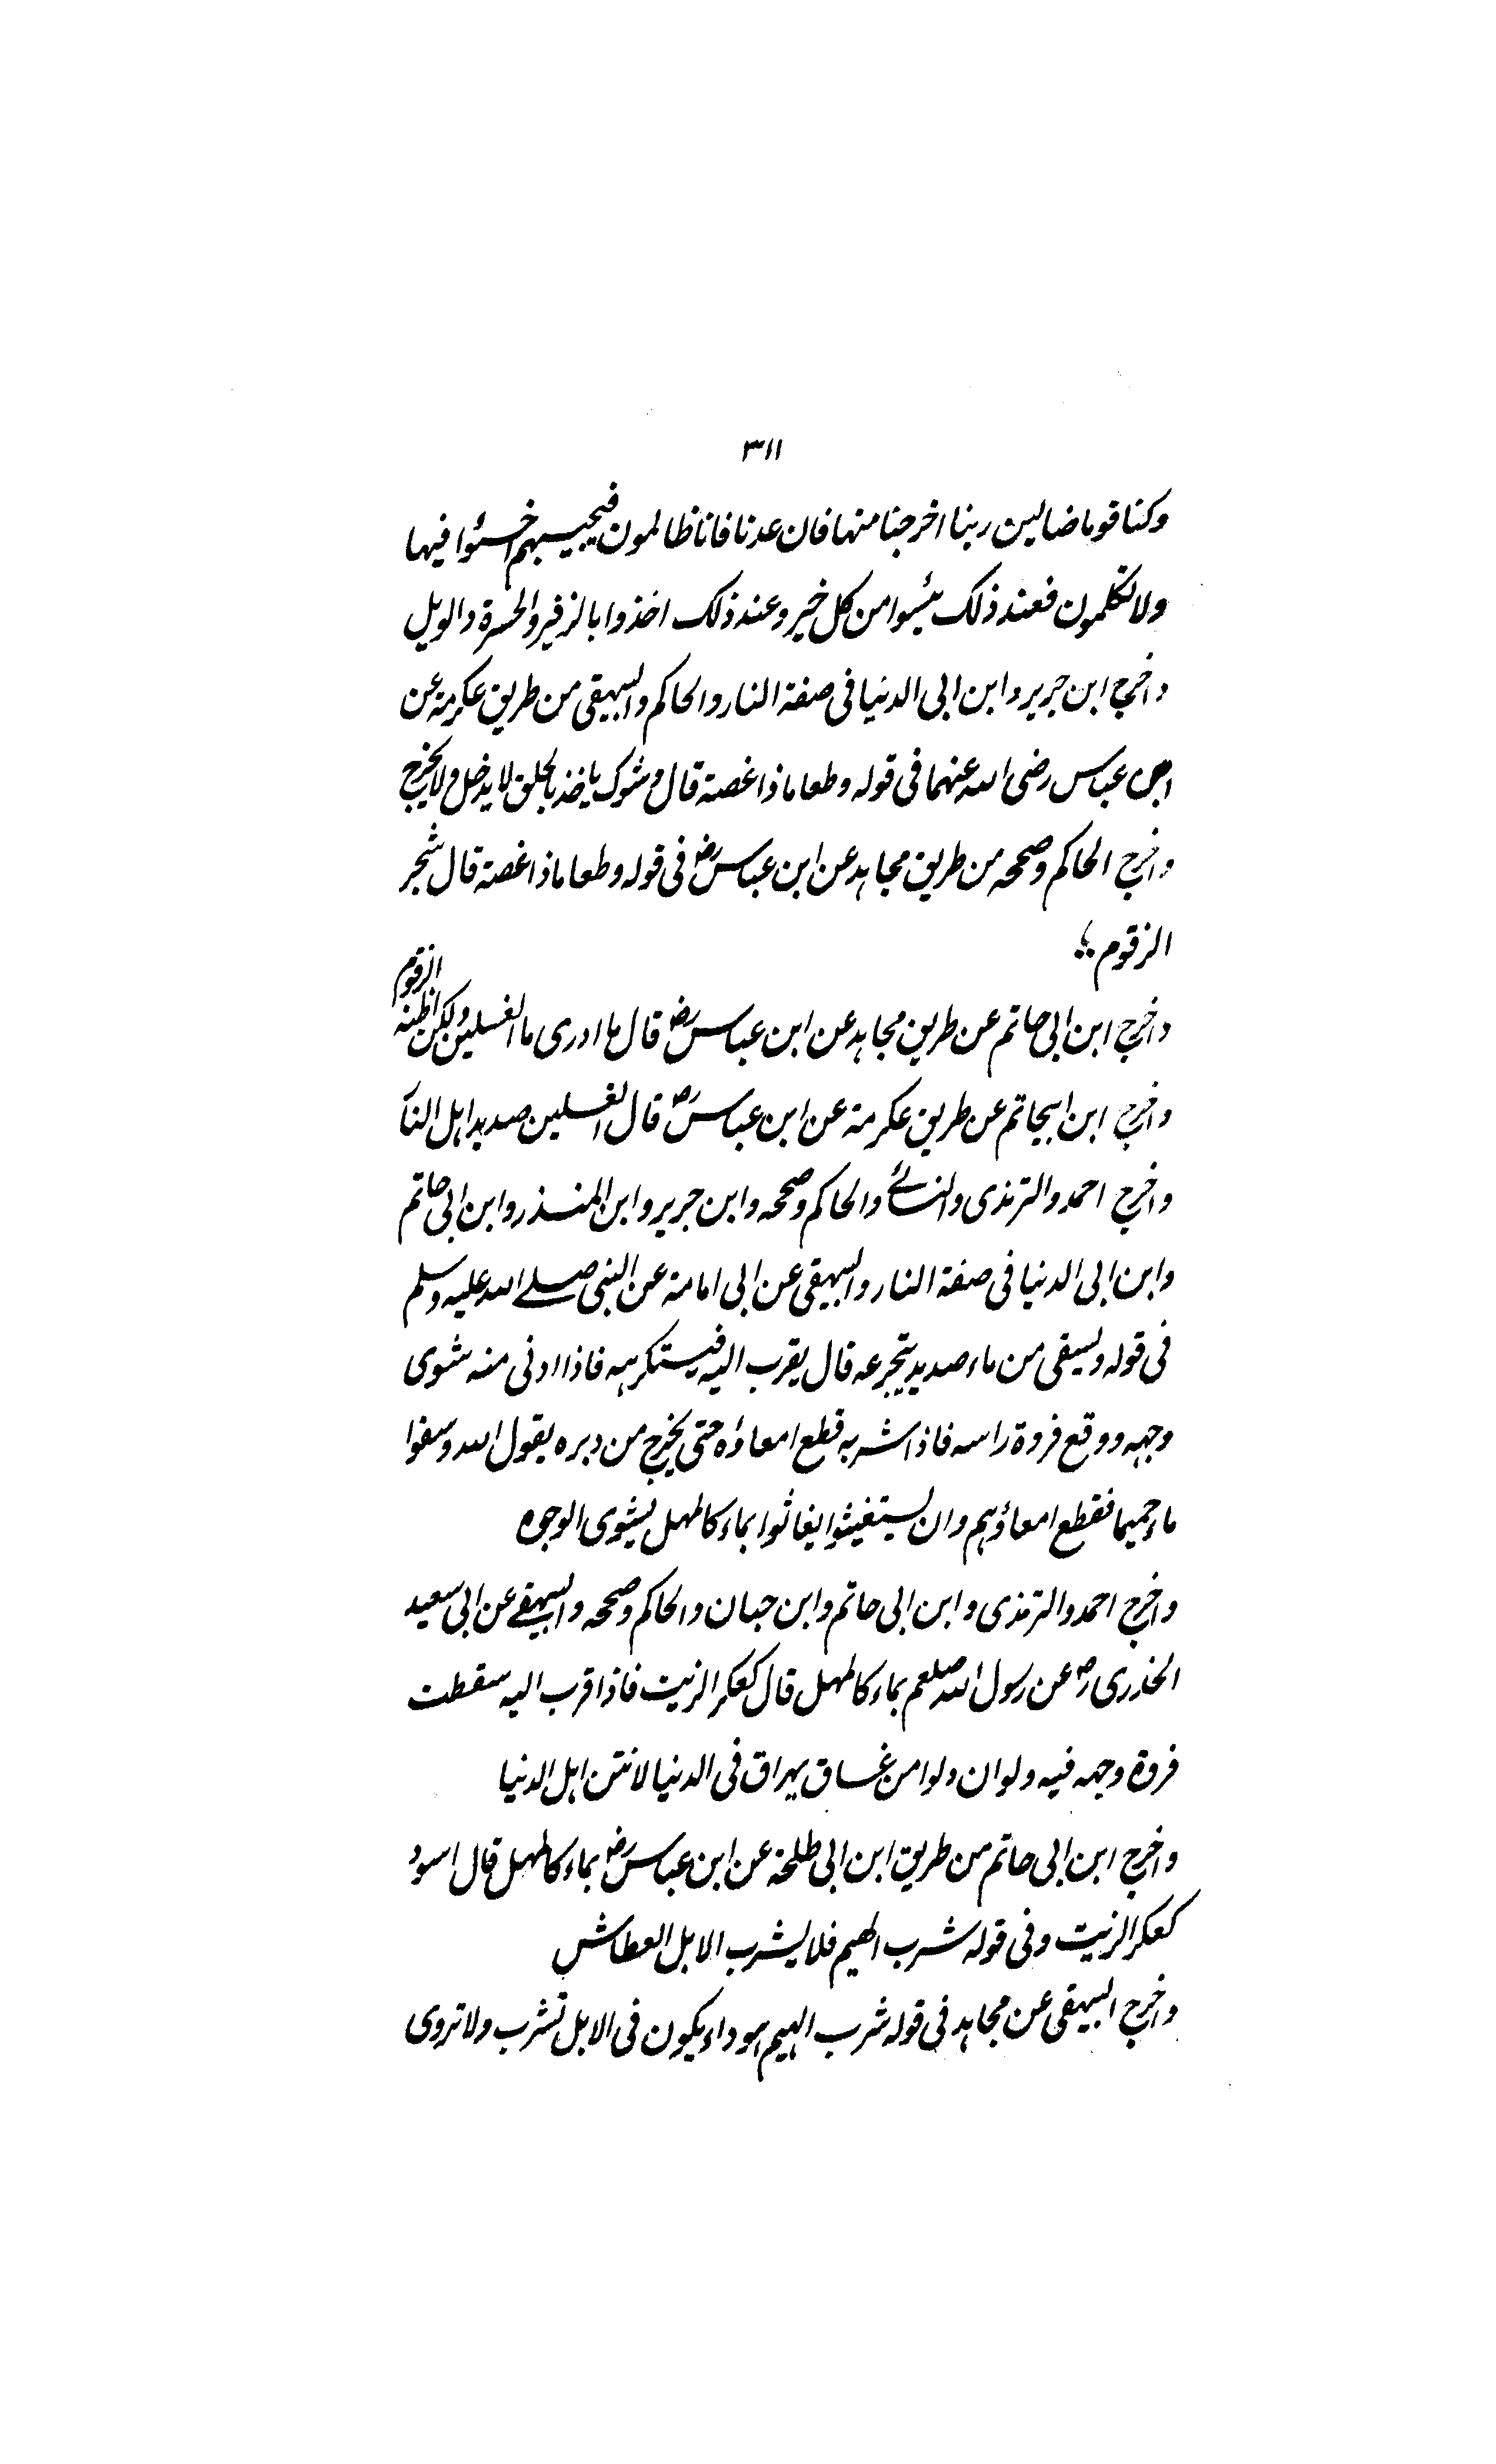 ٣١١
وكنا قوما ضالين ربنا اخرجنا منها فان عدنا فانا ظالمون فيجيبهم اخسئوا فيها
ولا تكلمون فعند ذلك يئسوا من كل خير وعند ذلك اخذوا بالزفير والحسرة والويل
واخرج ابن جرير وابن ابي الدنيا في صفة النار والحاكم والبيهقي من طريق عكرمة عن
ابن عباس رضي الله عنهما في قوله وطعاما ذا غصة قال شوك ياخذ بالحلق لا يدخل ولا يخرج
واخرج الحاكم وصححه من طريق مجاهد عن ابن عباس رض في قوله وطعاما ذا غصة قال شجر
الزقوم
واخرج ابن ابي حاتم عن طريق مجاهد عن ابن عباس رض قال ما ادرى ما الغسلين ولكن اظنه الزقوم
واخرج ابن ابيحاتم عن طريق عكرمة عن ابن عباس رض قال الغسلين صديد اهل النار
واخرج احمد والترمذى والنسائے والحاكم وصححه وابن جرير وابن المنذر وابن ابي حاتم
وابن ابي الدنيا في صفة النار والبيهقي عن ابي امامة عن النبي صلے الله عليه وسلم
في قوله ويسقى من ماء صديد يتجرعه قال يقرب اليه فيستكرهه فاذا ادنى منه شوى
وجهه ووقع فروة راسه فاذا شربه قطع امعاؤه حتى يخرج من دبره يقول الله وسقوا
ماء حميما فقطع امعاؤهم وان يستغيثوا يغاثوا بماء كالمهل يشوى الوجوه
واخرج احمد والترمذى وابن ابي حاتم وابن حبان والحاكم وصححه والبيهقے عن ابي سعيد
الخدرى رض عن رسول الله صلعم بماء كالمهل قال كعكر الزيت فاذا قرب اليه سقطت
فروة وجهه فيه ولو ان دلوا من غساق يهراق في الدنيا لانتن اهل الدنيا
واخرج ابن ابي حاتم من طريق ابن ابي طلحة عن ابن عباس رض بماء كالمهل قال اسود
كعكر الزيت وفي قوله شرب الهيم فلا ليشرب الابل العطاش
واخرج البيهقي عن مجاهد في قوله شرب الهيم هو داء يكون في الابل تشرب ولا تروى